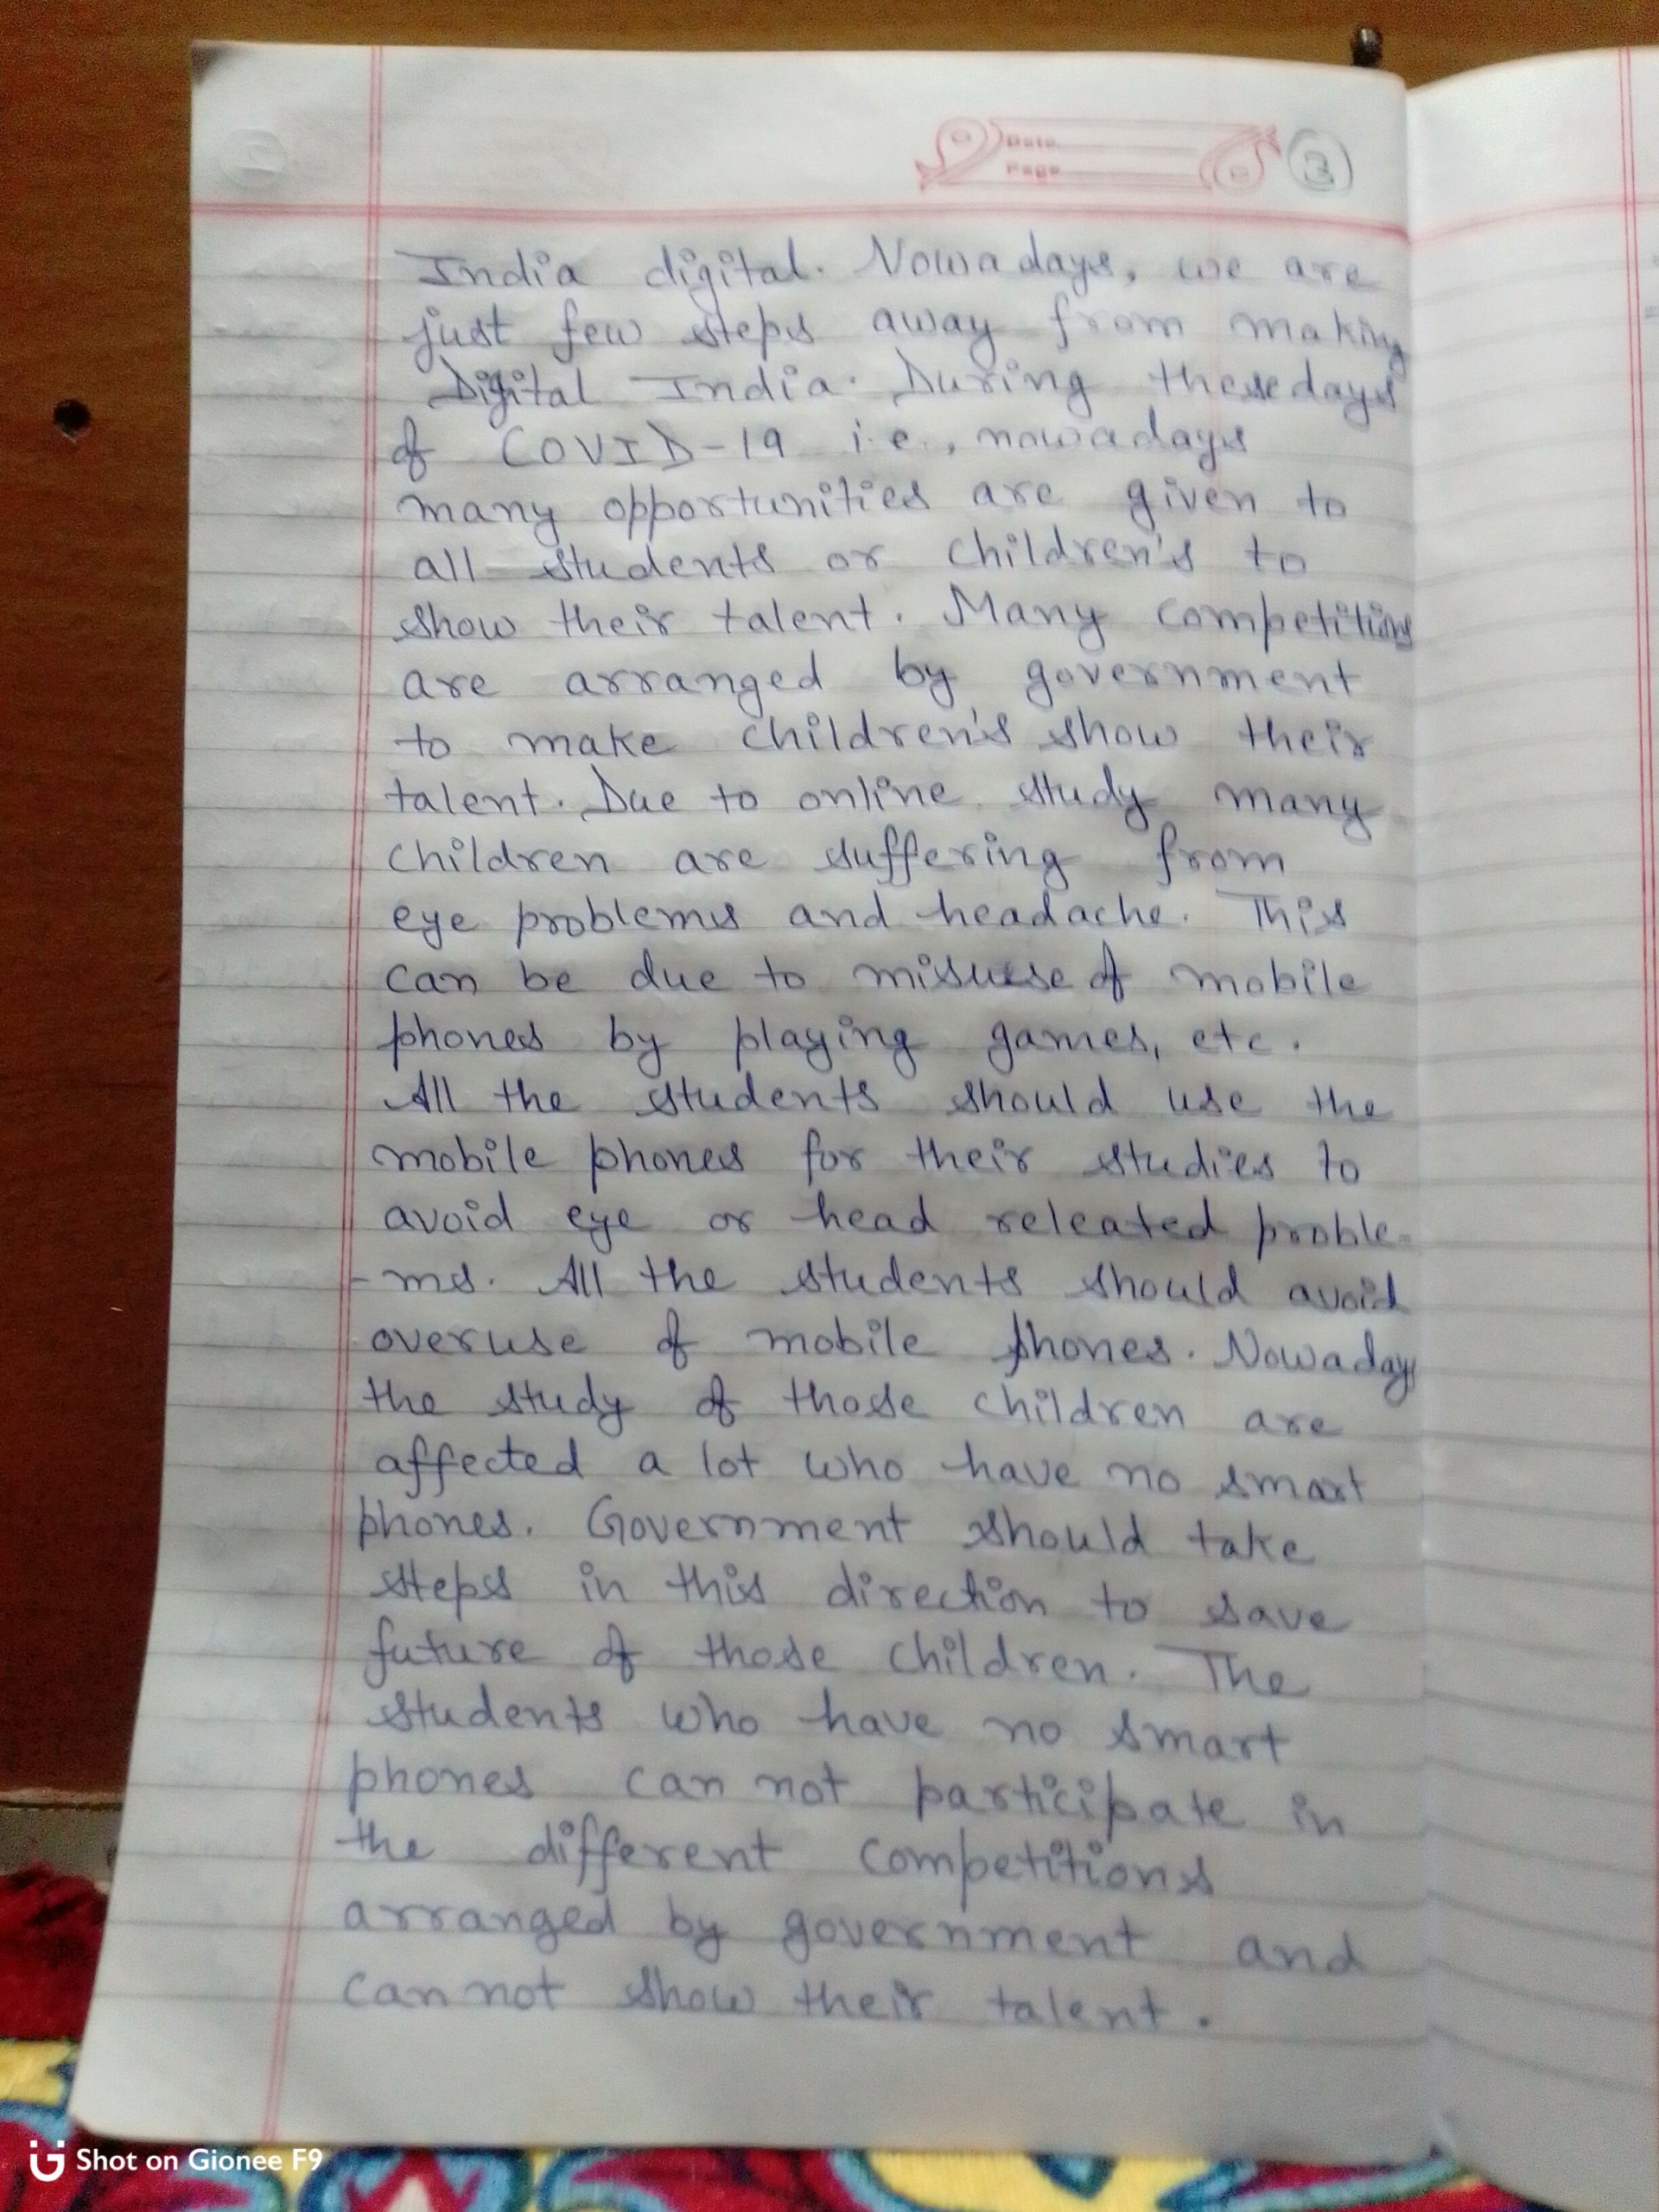 Date
Page
3
India digital. Nowadays, we are
just few steps away from making
Digital India. During these days
of COVID-19 i.e., nowadays
many opportunities are given to
all students or children's to
show their talent. Many competitions
are arranged by government
to make children's show their
talent. Due to online study many
children are suffering from
eye problems and headache. This
can be due to misuse of mobile
phones by playing games, etc.
All the students should use the
mobile phones for their studies to
avoid eye or head releated proble-
-ms. All the students should avoid
overuse of mobile phones. Nowadays
the study of those children are
affected a lot who have no smart
phones. Government should take
steps in this direction to save
future of those children. The
students who have no smart
phones can not participate in
the different competitions
arranged by government and
can not show their talent.
Shot on Gionee F9